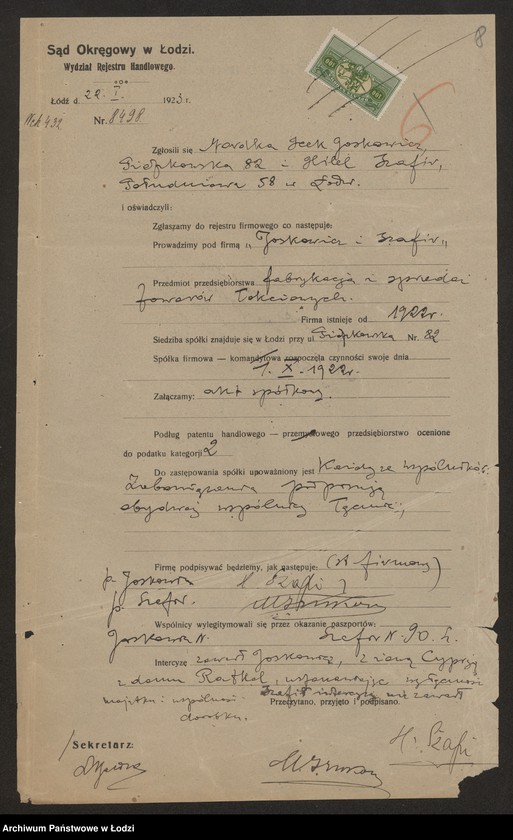 8
Sąd Okręgowy w Łodzi.
Wydział Rejestru Handlowego.
Łódź d. 22. I. 1923 r.
Nr. 8498
Zgłosili się Icek Joskowicz,
82 i Hilel Szafir,
Południowa 58 w Łodzi.
i oświadczyli:
Zgłaszamy do rejestru firmowego co następuje:
Prowadzimy pod firmą „Joskowicz i Szafir”
Przedmiot przedsiębiorstwa fabrykacja i sprzedaż
towarów łokciowych.
Firma istnieje od 1922 r.
Siedziba spółki znajduje się w Łodzi przy ul Nr. 82
Spółka firmowa — komandytowa rozpoczęła czynności swoje dnia
1. X. 1922 r.
Załączamy: akt spółkowy.
Podług patentu handlowego — przemysłowego przedsiębiorstwo ocenione
do podatku kategorji 2
Do zastępowania spółki upoważniony jest Każdy ze wspólników.
Zobowiązania podpisują
obydwaj wspólnicy łącznie,
Firmę podpisywać będziemy, jak następuje: (St. firmowy)
p. Joskowicz H Szafir
p. Szafir
Wspólnicy wylegitymowali się przez okazanie paszportów:
Joskowicz N. Szafir N.
Intercyzę zawarł Joskowicz, z żoną Cyprą
z domu, ustanawiając wyłączność
majątku i wspólność Szafir intercyzy nie zawarł
dorobku. Przeczytano, przyjęto i podpisano.
H. Szafir
Sekretarz:
Archiwum Państwowe w Łodzi